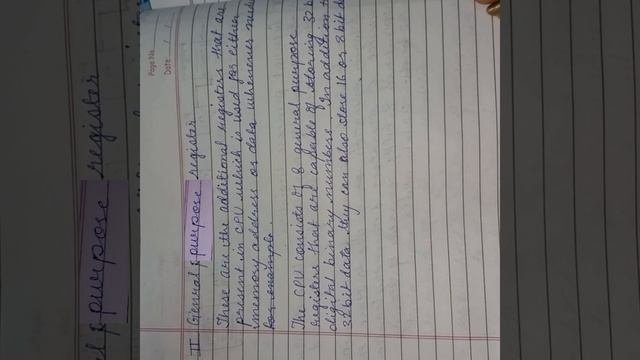 Page No.
Date
II General purpose register
These are the additional registers that are
present in CPU which is used for either
memory address or data whenever
for example.
The CPU consists of 8 general purpose
registers that are capable of storing 32 b
digital binary numbers. In addition to
32 bit data they can also store 16 or 8 bit d
purpose register